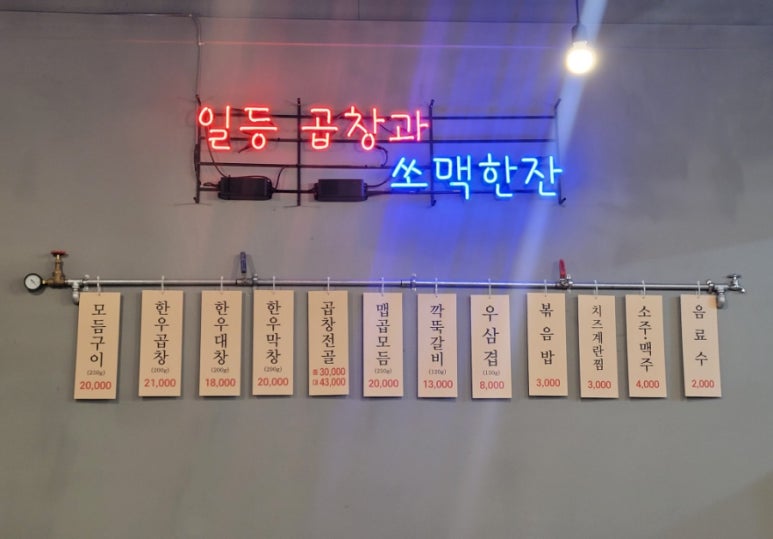 일등 곱창과
쏘맥한잔
모듬구이
(250g)
20,000
한우곱창
(200g)
21,000
한우대창
(200g)
18,000
한우막창
(200g)
20,000
곱창전골
중 30,000
대 43,000
맵곱모듬
(250g)
20,000
깍뚝갈비
(120g)
13,000
우삼겹
(150g)
8,000
볶음밥
3,000
치즈계란찜
3,000
소주·맥주
4,000
음료수
2,000